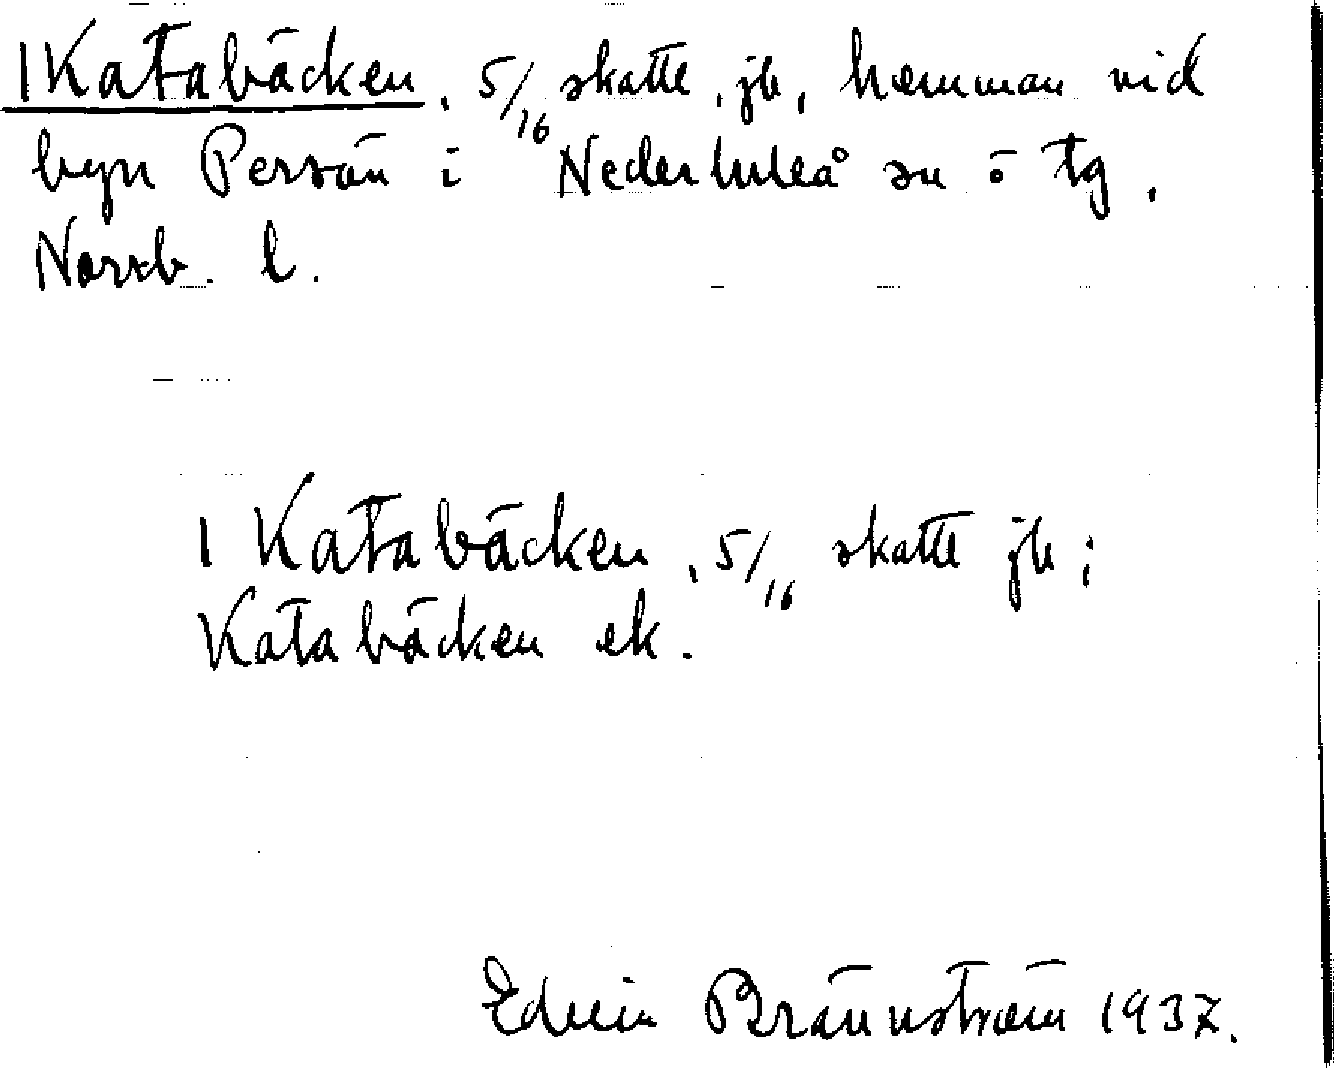 1 Katabäcken, 5/16 skatte, jb, hemman vid
byn Persön i Nederluleå sn o tg,
Norrb. l.
1 Katabäcken, 5/16 skatte jb;
Katabäcken ek.
Edvin Brännström 1937.